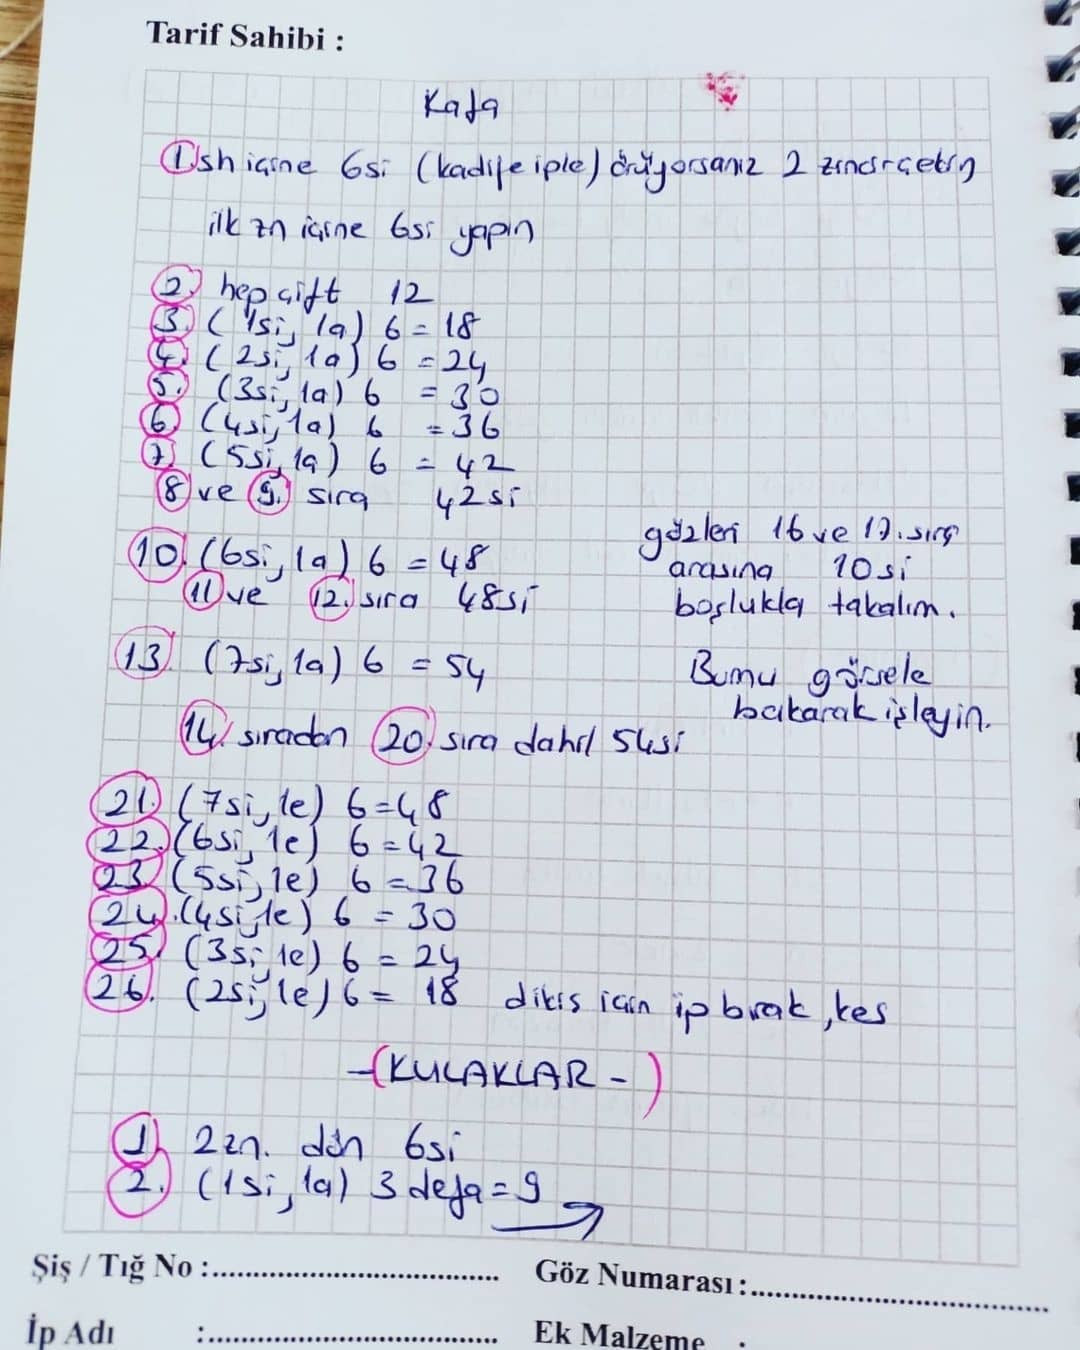 Tarif Sahibi :
Kafa
1. sh içine 6si (kadife iple) örüyorsanız 2 zincir çekin
ilk zn içine 6si yapın
2. hep çift 12
3. (1si, 1a) 6 = 18
4. (2si, 1a) 6 = 24
5. (3si, 1a) 6 = 30
6. (4si, 1a) 6 = 36
7. (5si, 1a) 6 = 42
8 ve 9. sıra 42si
10. (6si, 1a) 6 = 48
11 ve 12. sıra 48si
gözleri 16 ve 17. sıra
arasına 10si
boşlukla takalım.
13. (7si, 1a) 6 = 54
Burnu görsele
bakarak işleyin.
14. sıradan 20. sıra dahil 54si
21. (7si, 1e) 6=48
22. (6si, 1e) 6=42
23. (5si, 1e) 6=36
24. (4si, 1e) 6 = 30
25. (3si, 1e) 6 = 24
26. (2si, 1e) 6 = 18 dikiş için ip bırak, kes
-(KULAKLAR -)
1. 2zn. dön 6si
2. (1si, 1a) 3 defa = 9
Şiş / Tığ No :
Göz Numarası :
İp Adı :
Ek Malzeme :